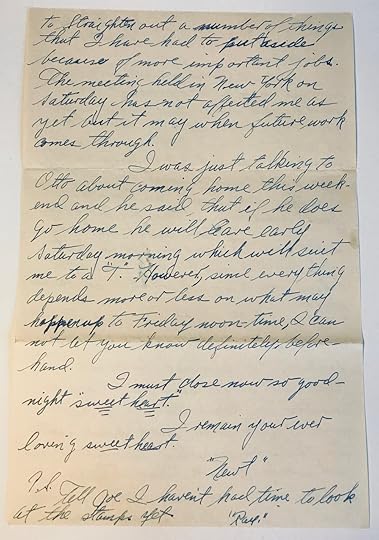 to straighten out a number of things
that I have had to put aside
because of more important jobs.
The meeting held in New York on
Saturday has not affected me as
yet but it may when future work
comes through.
I was just talking to
Otto about coming home this week-
end and he said, that if he does
go home he will leave early
Saturday morning which will suit
me to a "T". However, since everything
depends more or less on what may
happen up to Friday noon-time, I can
not let you know definitely before-
hand.
I must close now so good-
night "sweet heart."
I remain your ever
loving sweetheart.
"Newt"
P.S. Tell Joe I haven't had time to look
at the stamps yet
"Ray."